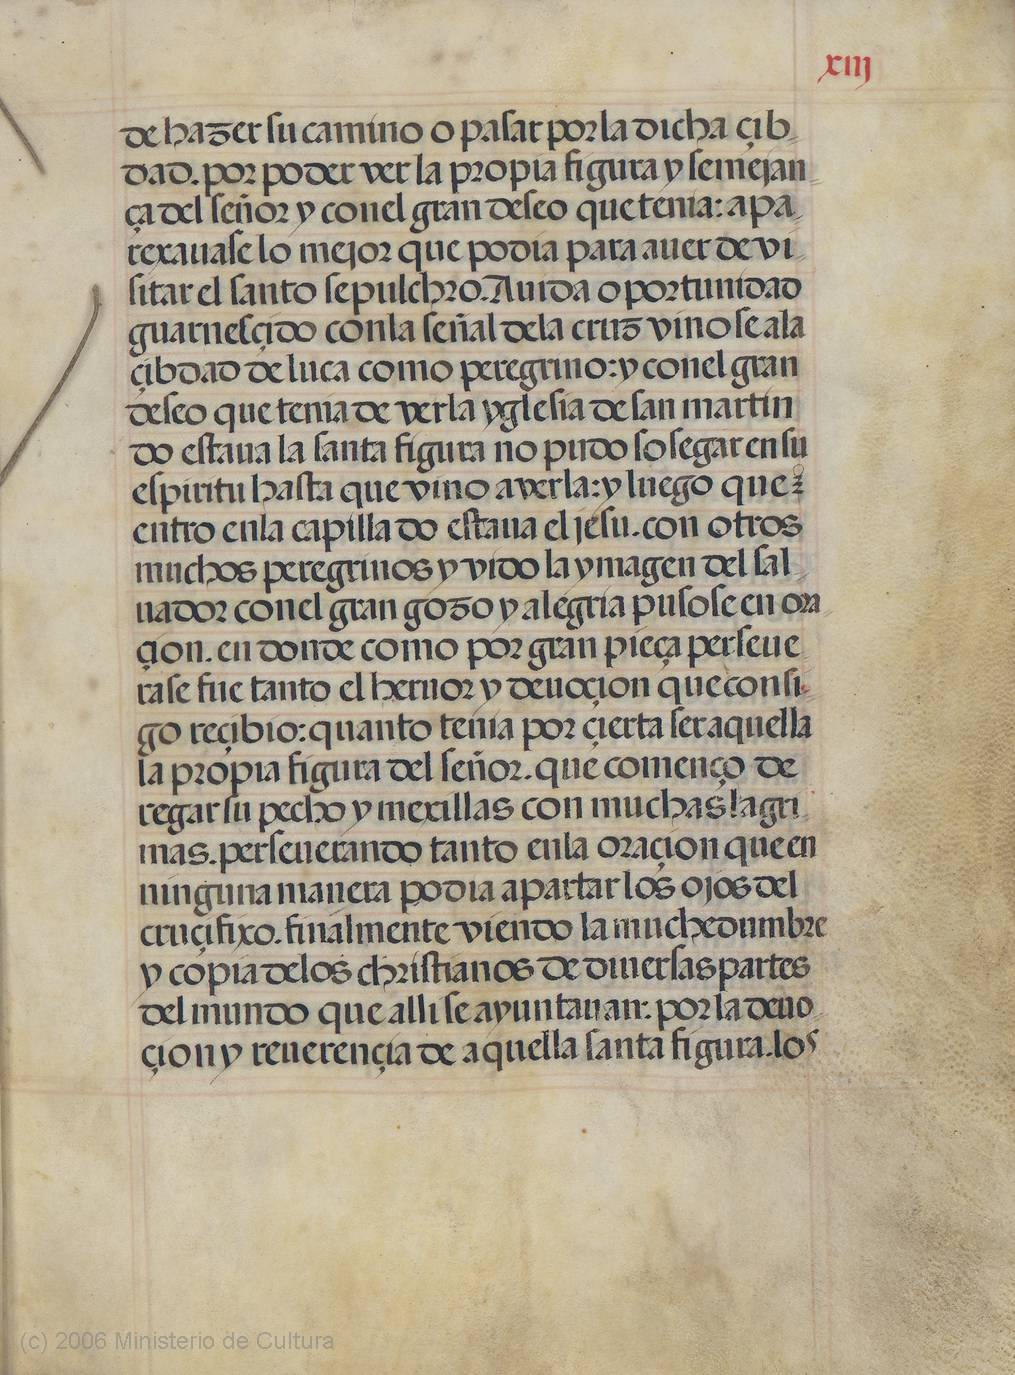 xiij
de hazer su camino o pasar por la dicha çib
dad. por poder ver la propia figura y semejan
ça del señor y con el gran deseo que tenia: apa
rexauase lo mejor que podia para auer de vi
sitar el santo sepulchro. Auida oportunidad
guarnesçido con la señal dela cruz vino se ala
çibdad de luca como peregrino: y con el gran
deseo que tenia de ver la yglesia de san martin
do estaua la santa figura no pudo sosegar en su
espiritu hasta que vino a verla: y luego que
entro enla capilla do estaua el jesu. con otros
muchos peregrinos y vido la ymagen del sal
uador con el gran gozo y alegria puso se en ora
çion. en donde como por gran pieça perseue
rase fue tanto el heruor y deuoçion que consi
go reçibio: quanto tenia por çierta ser aquella
la propia figura del señor. que començo de
regar su pecho y mexillas con muchas lagri
mas. perseuerando tanto enla oraçion que en
ninguna manera podia apartar los ojos del
cruçifixo. finalmente viendo la muchedumbre
y copia delos christianos de diuersas partes
del mundo que alli se ayuntauan: por la deuo
çion y reuerençia de aquella santa figura. los
(c) 2006 Ministerio de Cultura